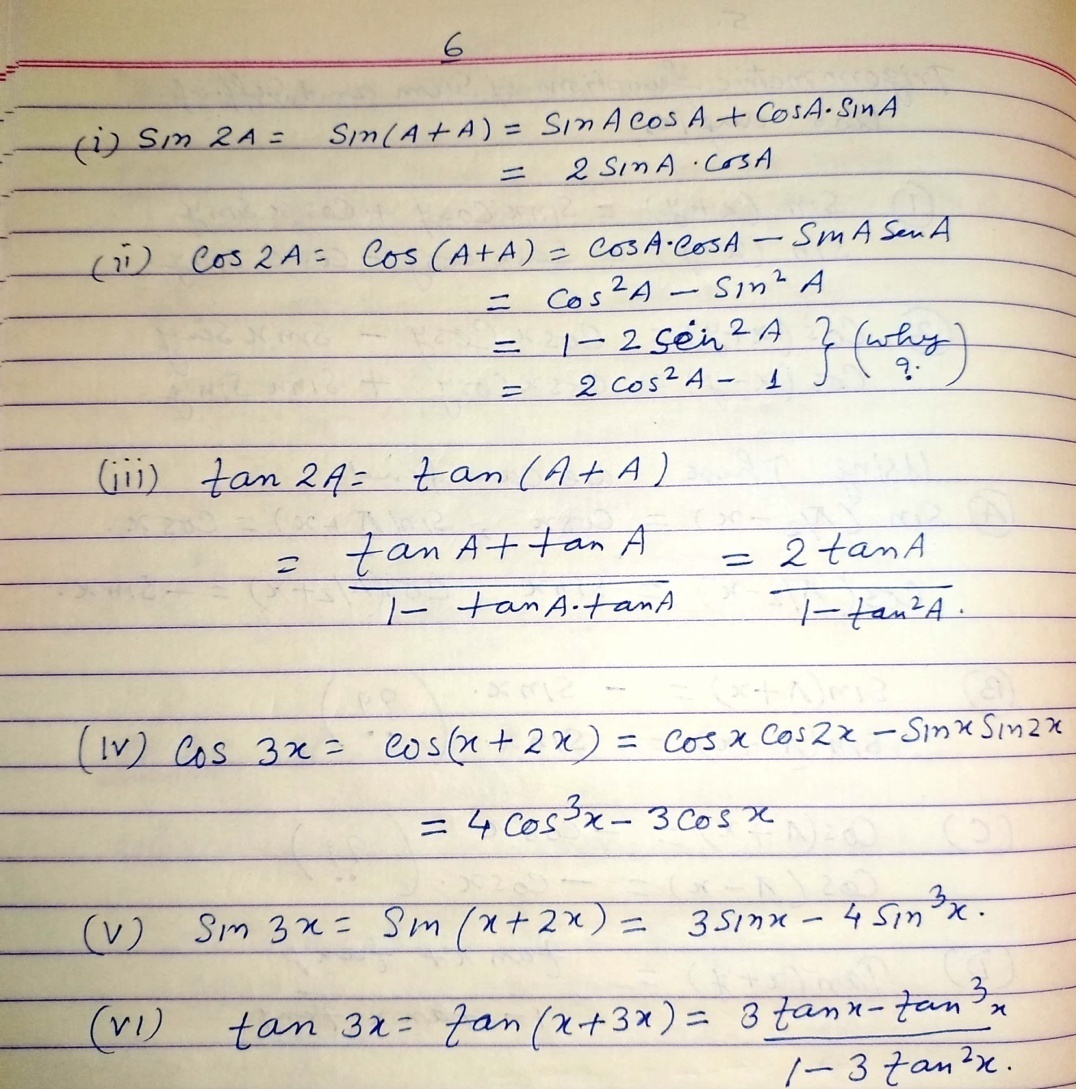 6
(i) Sin 2A = Sin(A+A) = SinA cosA + CosA·SinA
= 2 SinA · CosA
(ii) Cos 2A = Cos (A+A) = CosA·CosA − SinA SenA
= Cos²A − Sin² A
= 1 − 2 Sein² A } (why
= 2 Cos²A − 1 ?)
(iii) tan 2A = tan (A+A)
= tan A + tan A / 1 − tanA·tanA = 2 tanA / 1 − tan²A.
(iv) Cos 3x = Cos(x+2x) = Cosx Cos2x − Sinx Sin2x
= 4 Cos³x − 3 Cos x
(v) Sin 3x = Sin (x+2x) = 3 Sinx − 4 Sin³x.
(vi) tan 3x = tan (x+3x) = 3 tanx − tan³x / 1 − 3 tan²x.